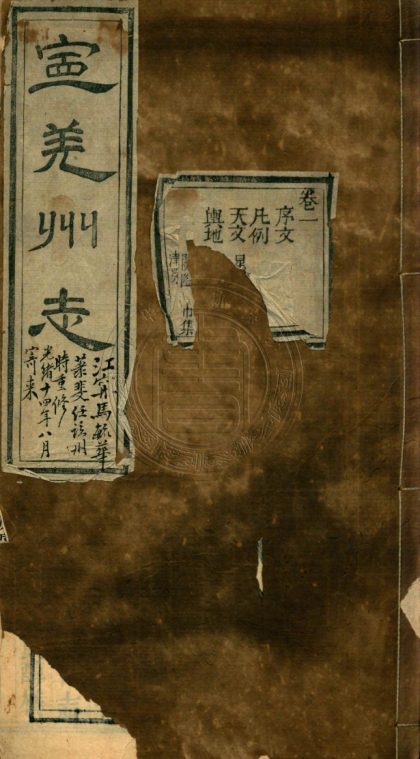 寍羌州志
江寧馬毓華
菉斐任該州
時重修
光緒十四年八月
寄来
卷一
序文
凡例
天文 星
輿地
市集